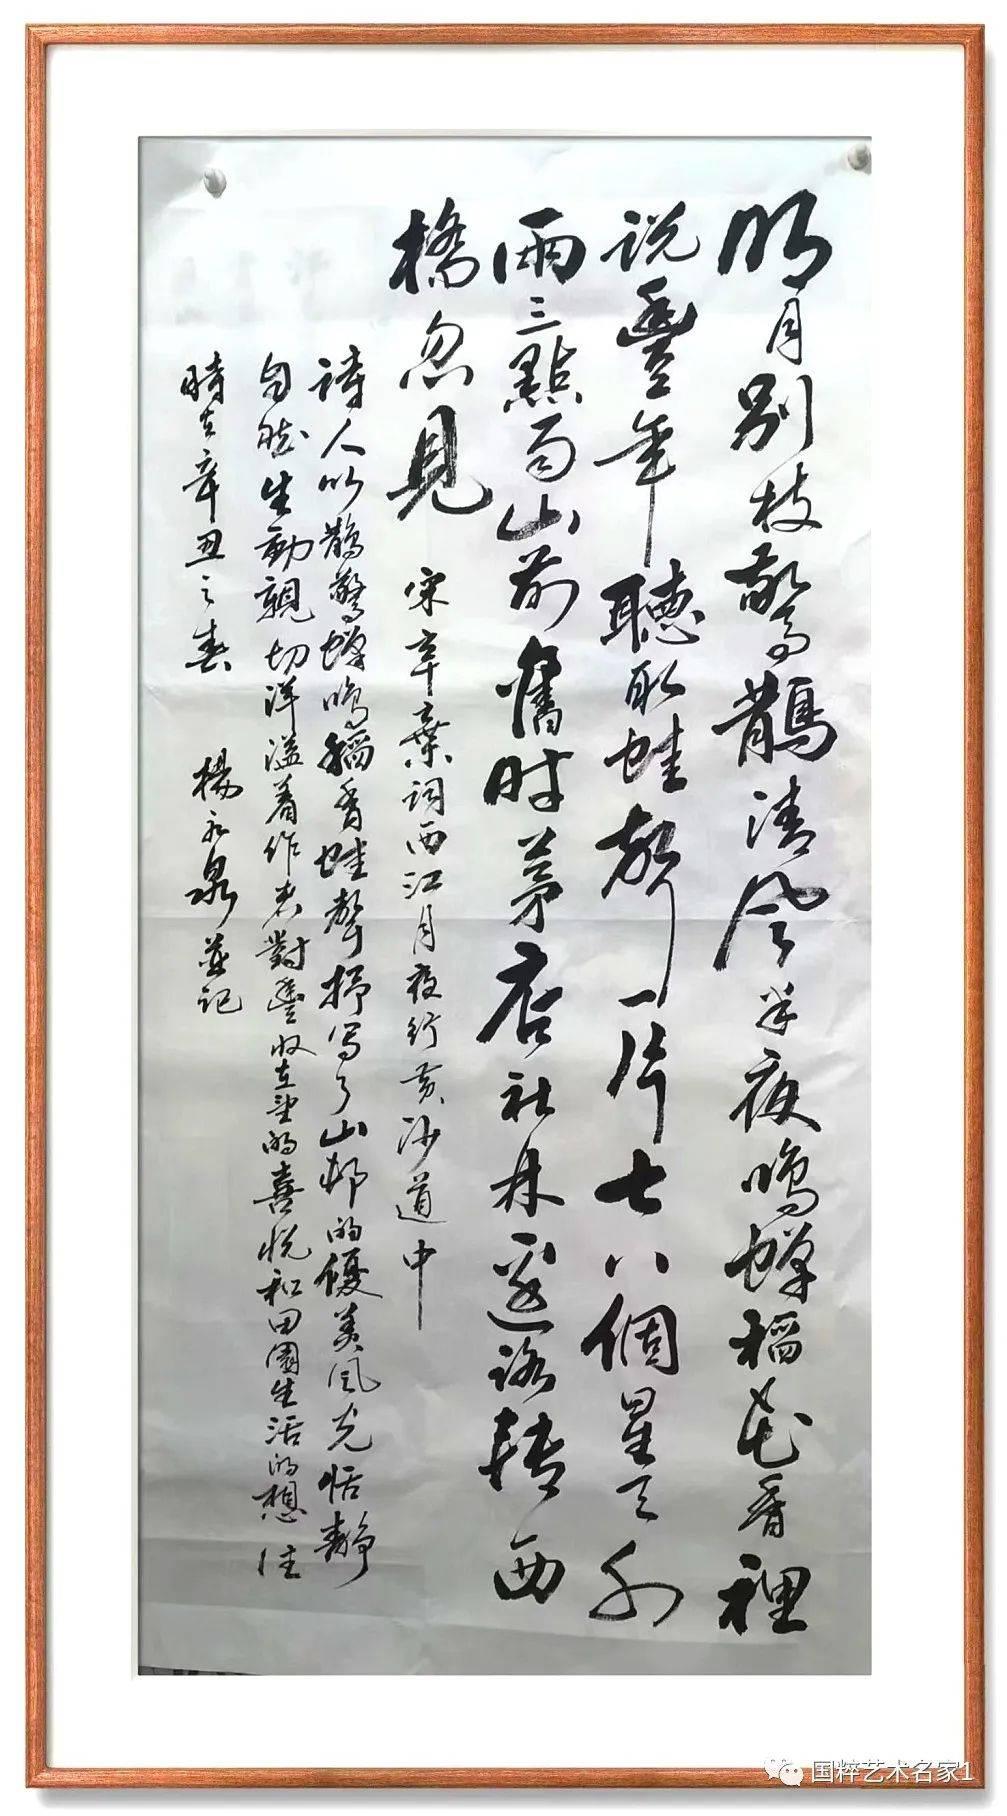 明月别枝驚鵲清風半夜鳴蟬稻花香裡
说豐年聽取蛙聲一片七八個星天外
兩三點雨山前舊时茅店社林邊路轉西
橋忽見 宋辛棄詞西江月夜行黄沙道中
詩人以鵲驚蟬鳴稻香蛙聲抒写了山邨的優美風光恬靜
自然生動親切洋溢着作者對豐收在望的喜悦和田園生活的想往
時在辛丑之春 楊永泉並记
国粹艺术名家1